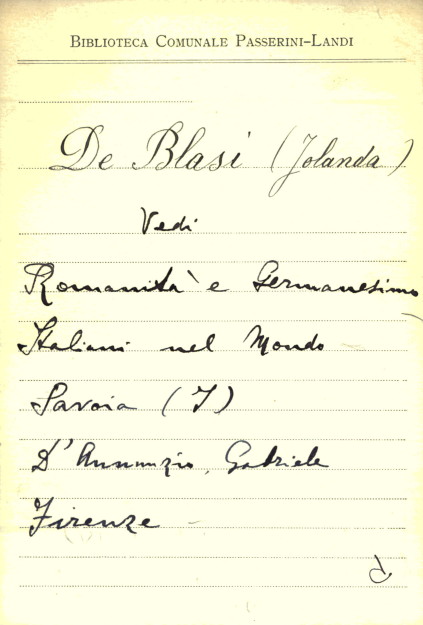 BIBLIOTECA COMUNALE PASSERINI-LANDI
De Blasi (Jolanda)
Vedi
Romanità e Germanesimo
Italiani nel Mondo
Savoia (I)
D'Annunzio, Gabriele
Firenze